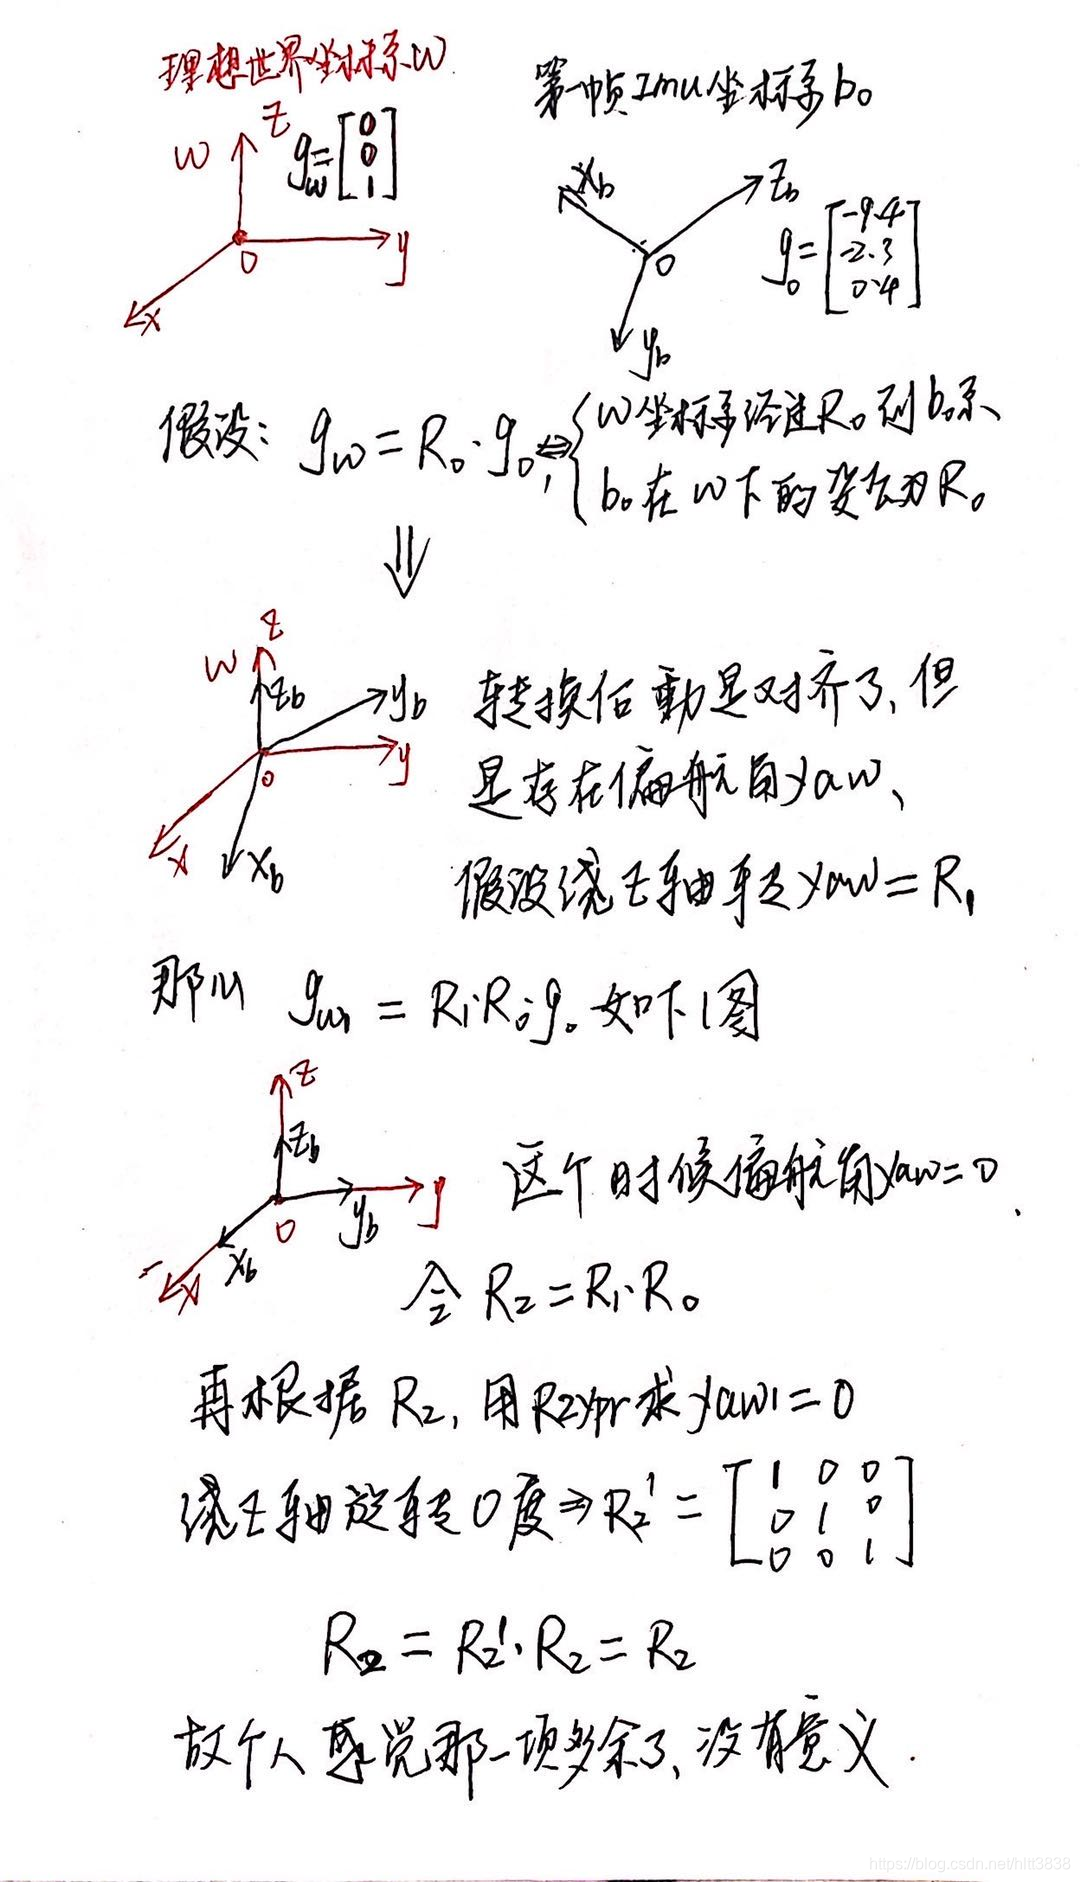 理想世界坐标系W
第一帧Imu坐标系b₀
W
z
g_w=[0 0 1]
O
y
x
x_b
z_b
O
y_b
g₀=[-9.4 -2.3 0.4]
假设: g_w=R₀·g₀, ⇔ {W坐标系经过R₀到b₀系、
b₀在W下的姿态为R₀
⇓
W
z
z_b
y_b
y
O
x
x_b
转换后 是对齐了,但
是存在偏航角yaw、
假设绕z轴转yaw=R₁
那么 g_w₁=R₁·R₀·g₀ 如下图
z
z_b
O
y_b
y
x_b
x
这个时候偏航角yaw=0
令 R₂=R₁·R₀
再根据 R₂, 用R2ypr求yaw1=0
绕z轴旋转0度⇒R₂'=[1 0 0
0 1 0
0 0 1]
R₂=R₂'·R₂=R₂
故个人感觉那一项多余了、没有意义.
https://blog.csdn.net/hltt3838